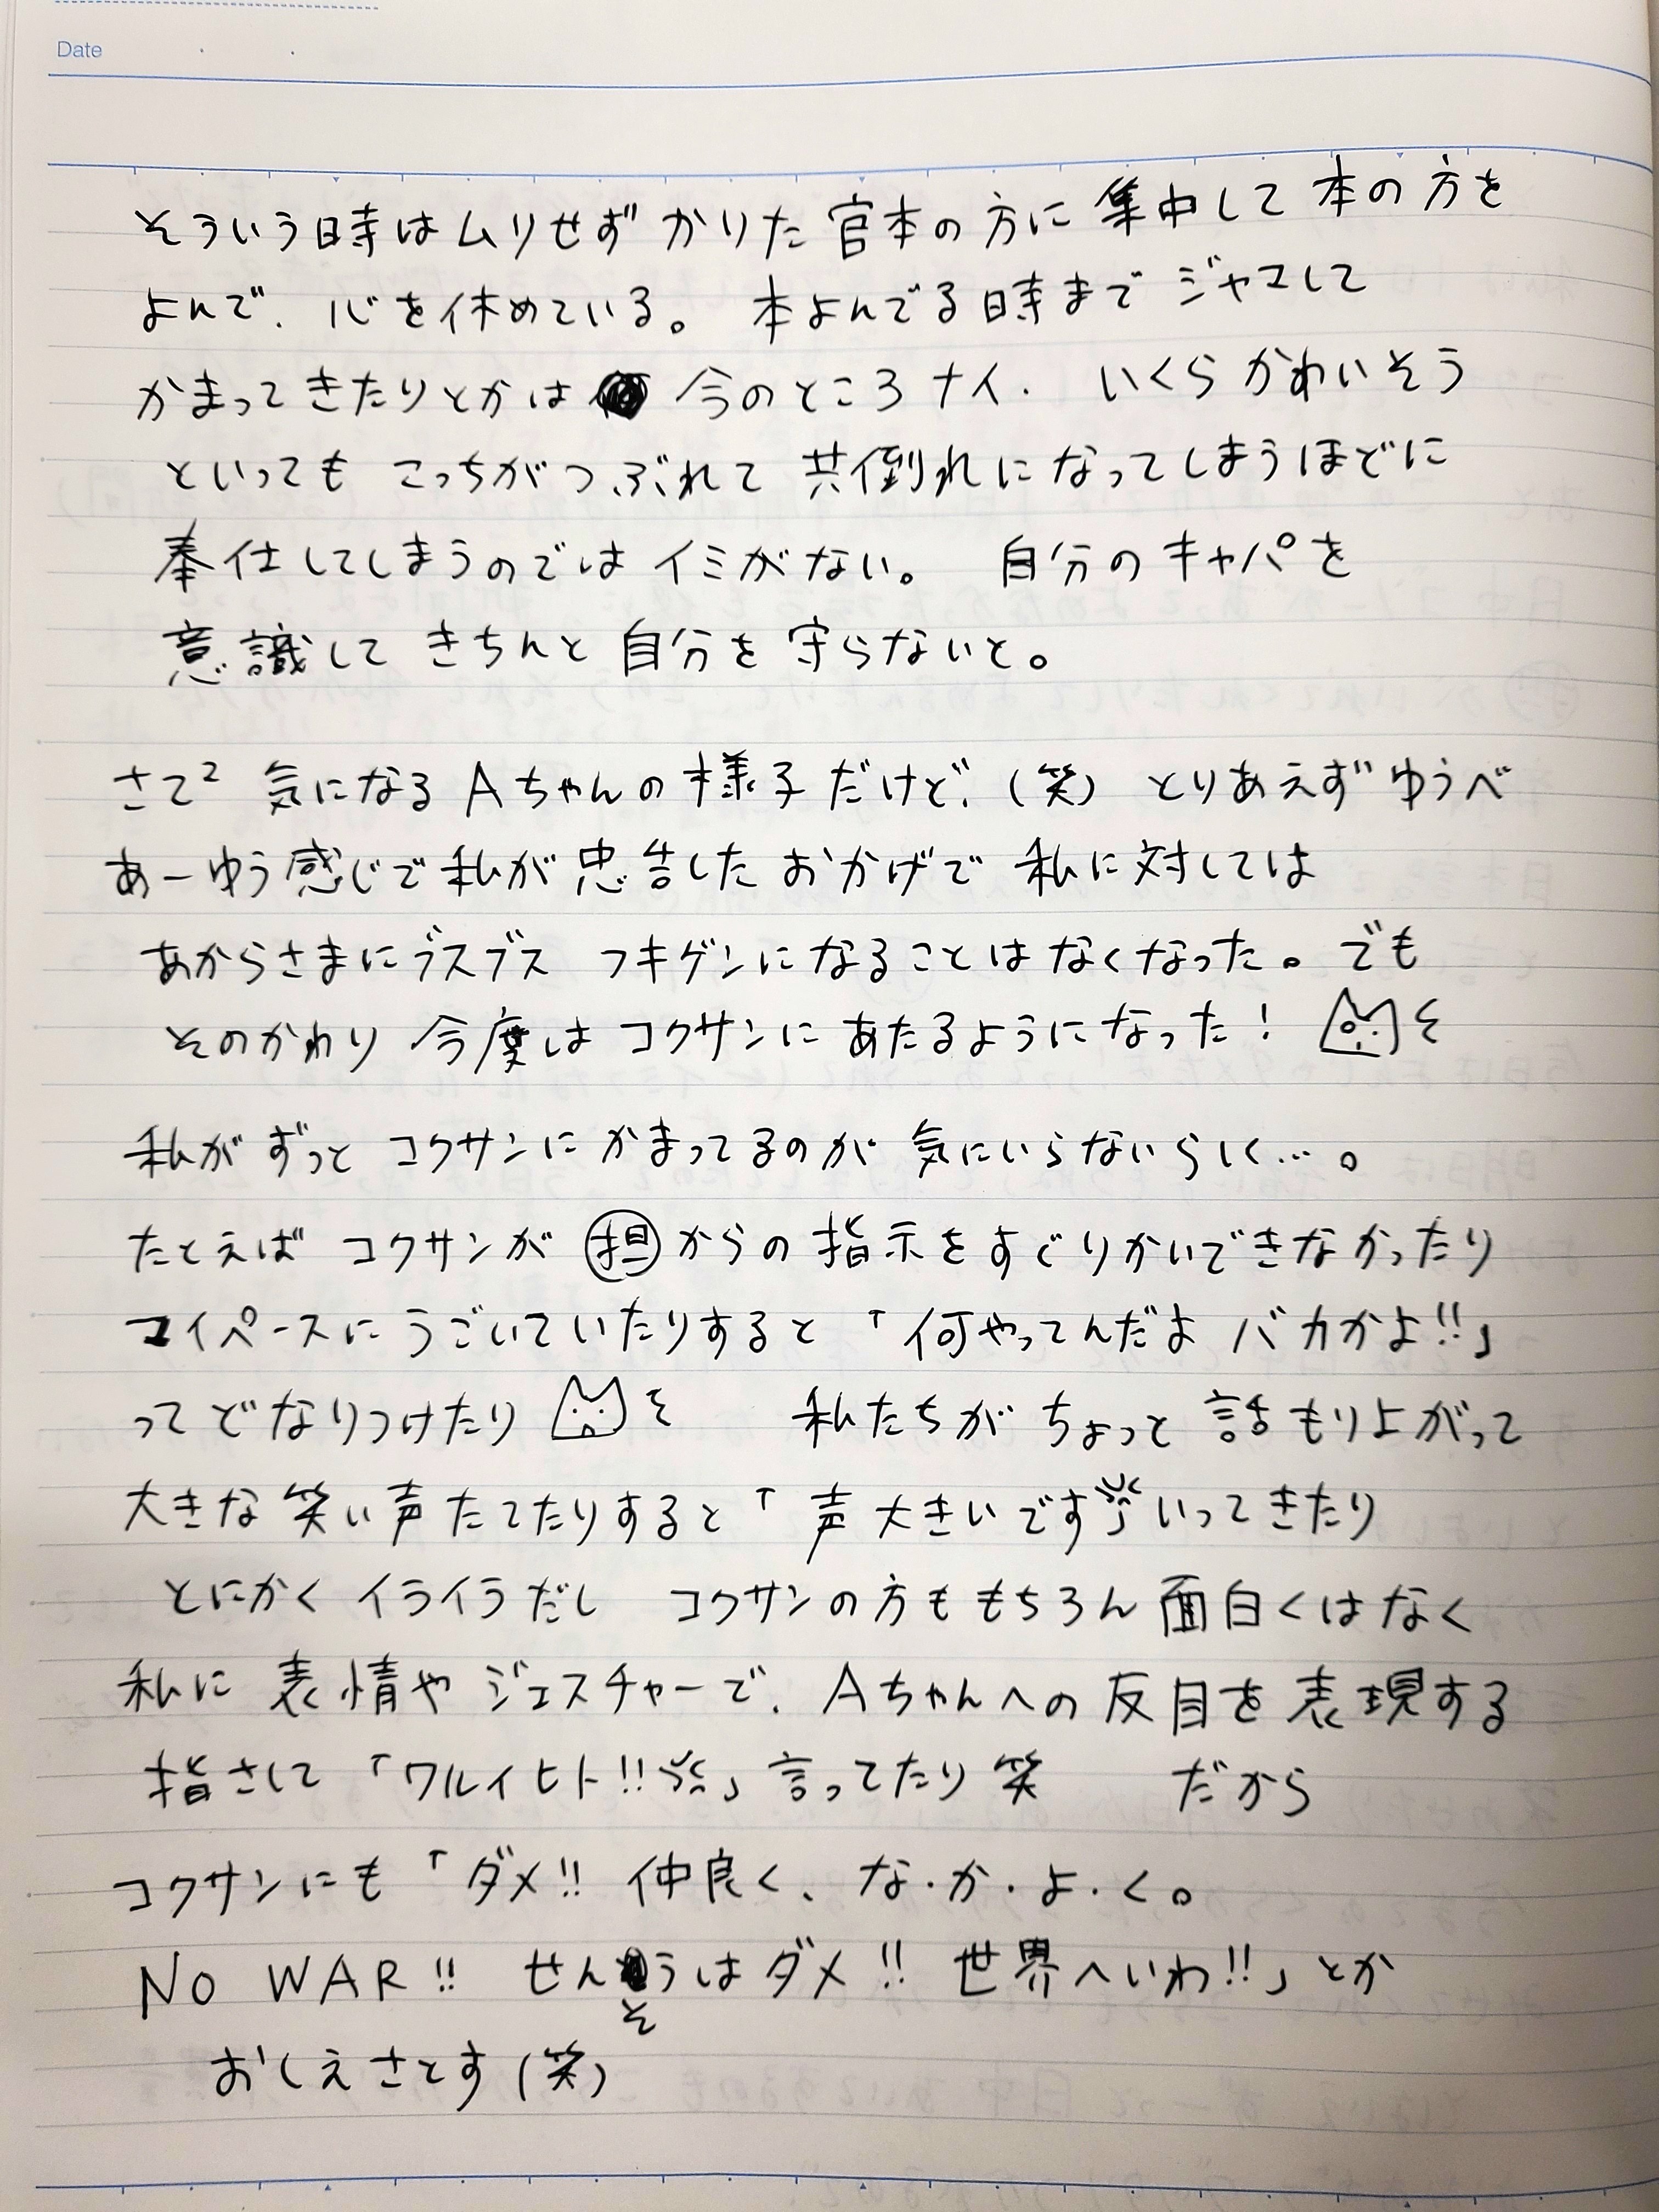 Date
そういう時はムりせずかりた官本の方に集中して本の方を
よんで、心を休めている。 本よんでる時までジャマして
かまってきたりとかは 今のところナイ. いくらかわいそう
といってもこっちがつぶれて共倒れになってしまうほどに
奉仕してしまうのではイミがない。 自分のキャパを
意識してきちんと自分を守らないと。
さて² 気になるAちゃんの様子だけど、(笑) とりあえずゆうべ
あーゆう感じで私が忠告したおかげで私に対しては
あからさまにブスブスフキゲンになることはなくなった。でも
そのかわり今度はコクサンにあたるようになった!
私がずっとコクサンにかまってるのが気にいらないらしく…。
たとえばコクサンが担からの指示をすぐりかいできなかったり
マイペースにうごいていたりすると「何やってんだよバカかよ!!」
ってどなりつけたり 私たちがちょっと話もり上がって
大きな笑い声たてたりすると「声大きいです」いってきたり
とにかくイライラだし コクサンの方ももちろん面白くはなく
私に表情やジェスチャーで、Aちゃんへの反目を表現する
指さして「ワルイヒト!!」言ってたり笑 だから
コクサンにも「ダメ!! 仲良く、な・か・よ・く。
NO WAR!! せんそうはダメ!! 世界へいわ!!」とか
おしえさとす(笑)